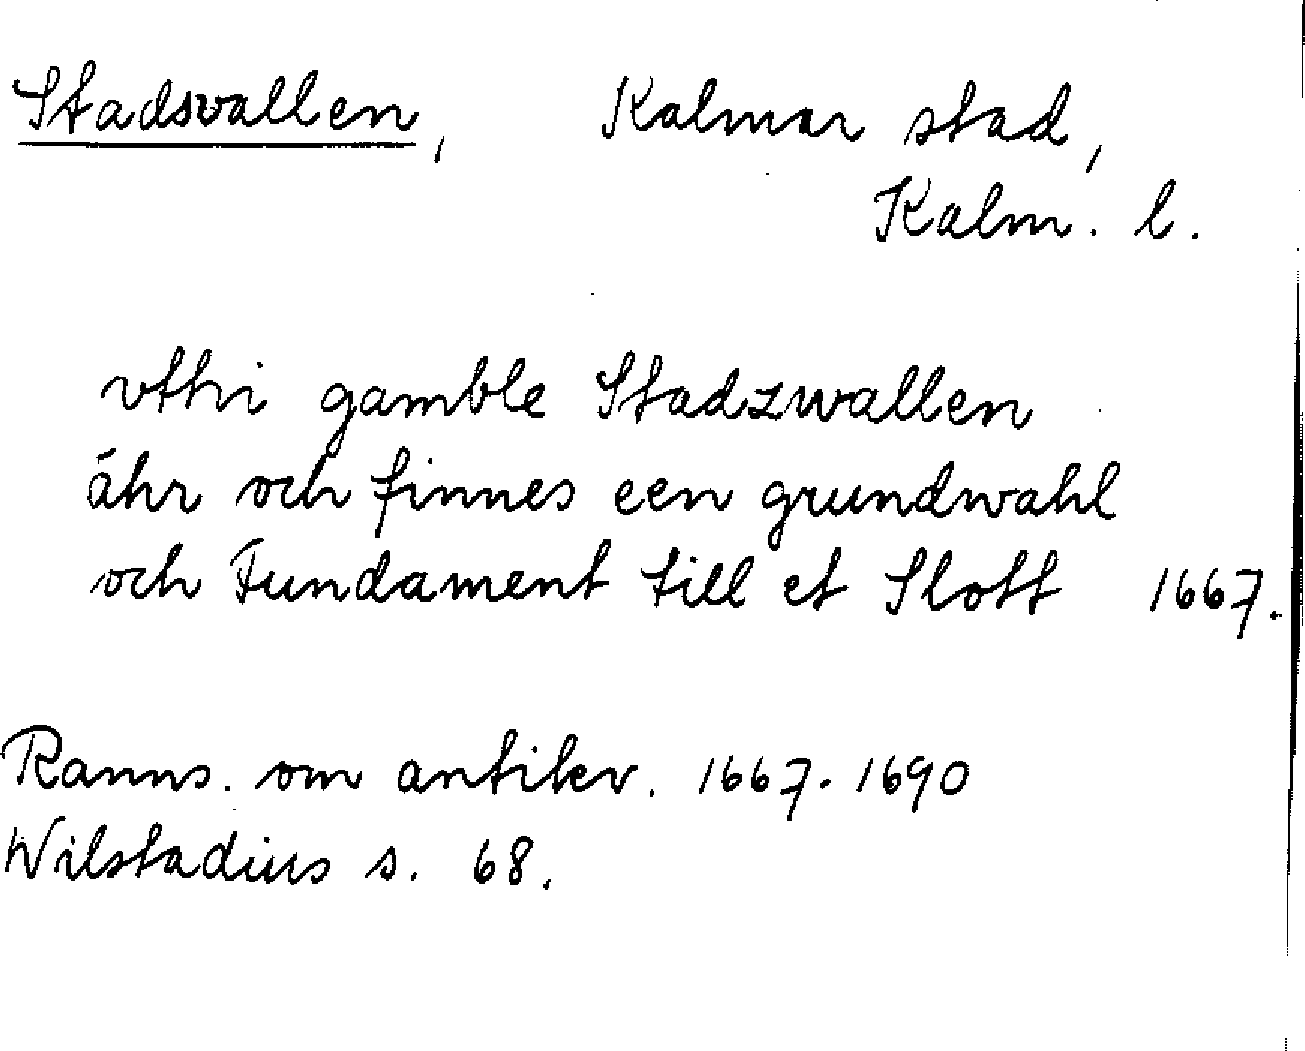 Stadsvallen, Kalmar stad,
Kalm. l.
vthi gamble Stadzwallen
ähr och finnes een grundwahl
och Fundament till et Slott 1667.
Ranns. om antikv. 1667-1690
Wilstadius s. 68.